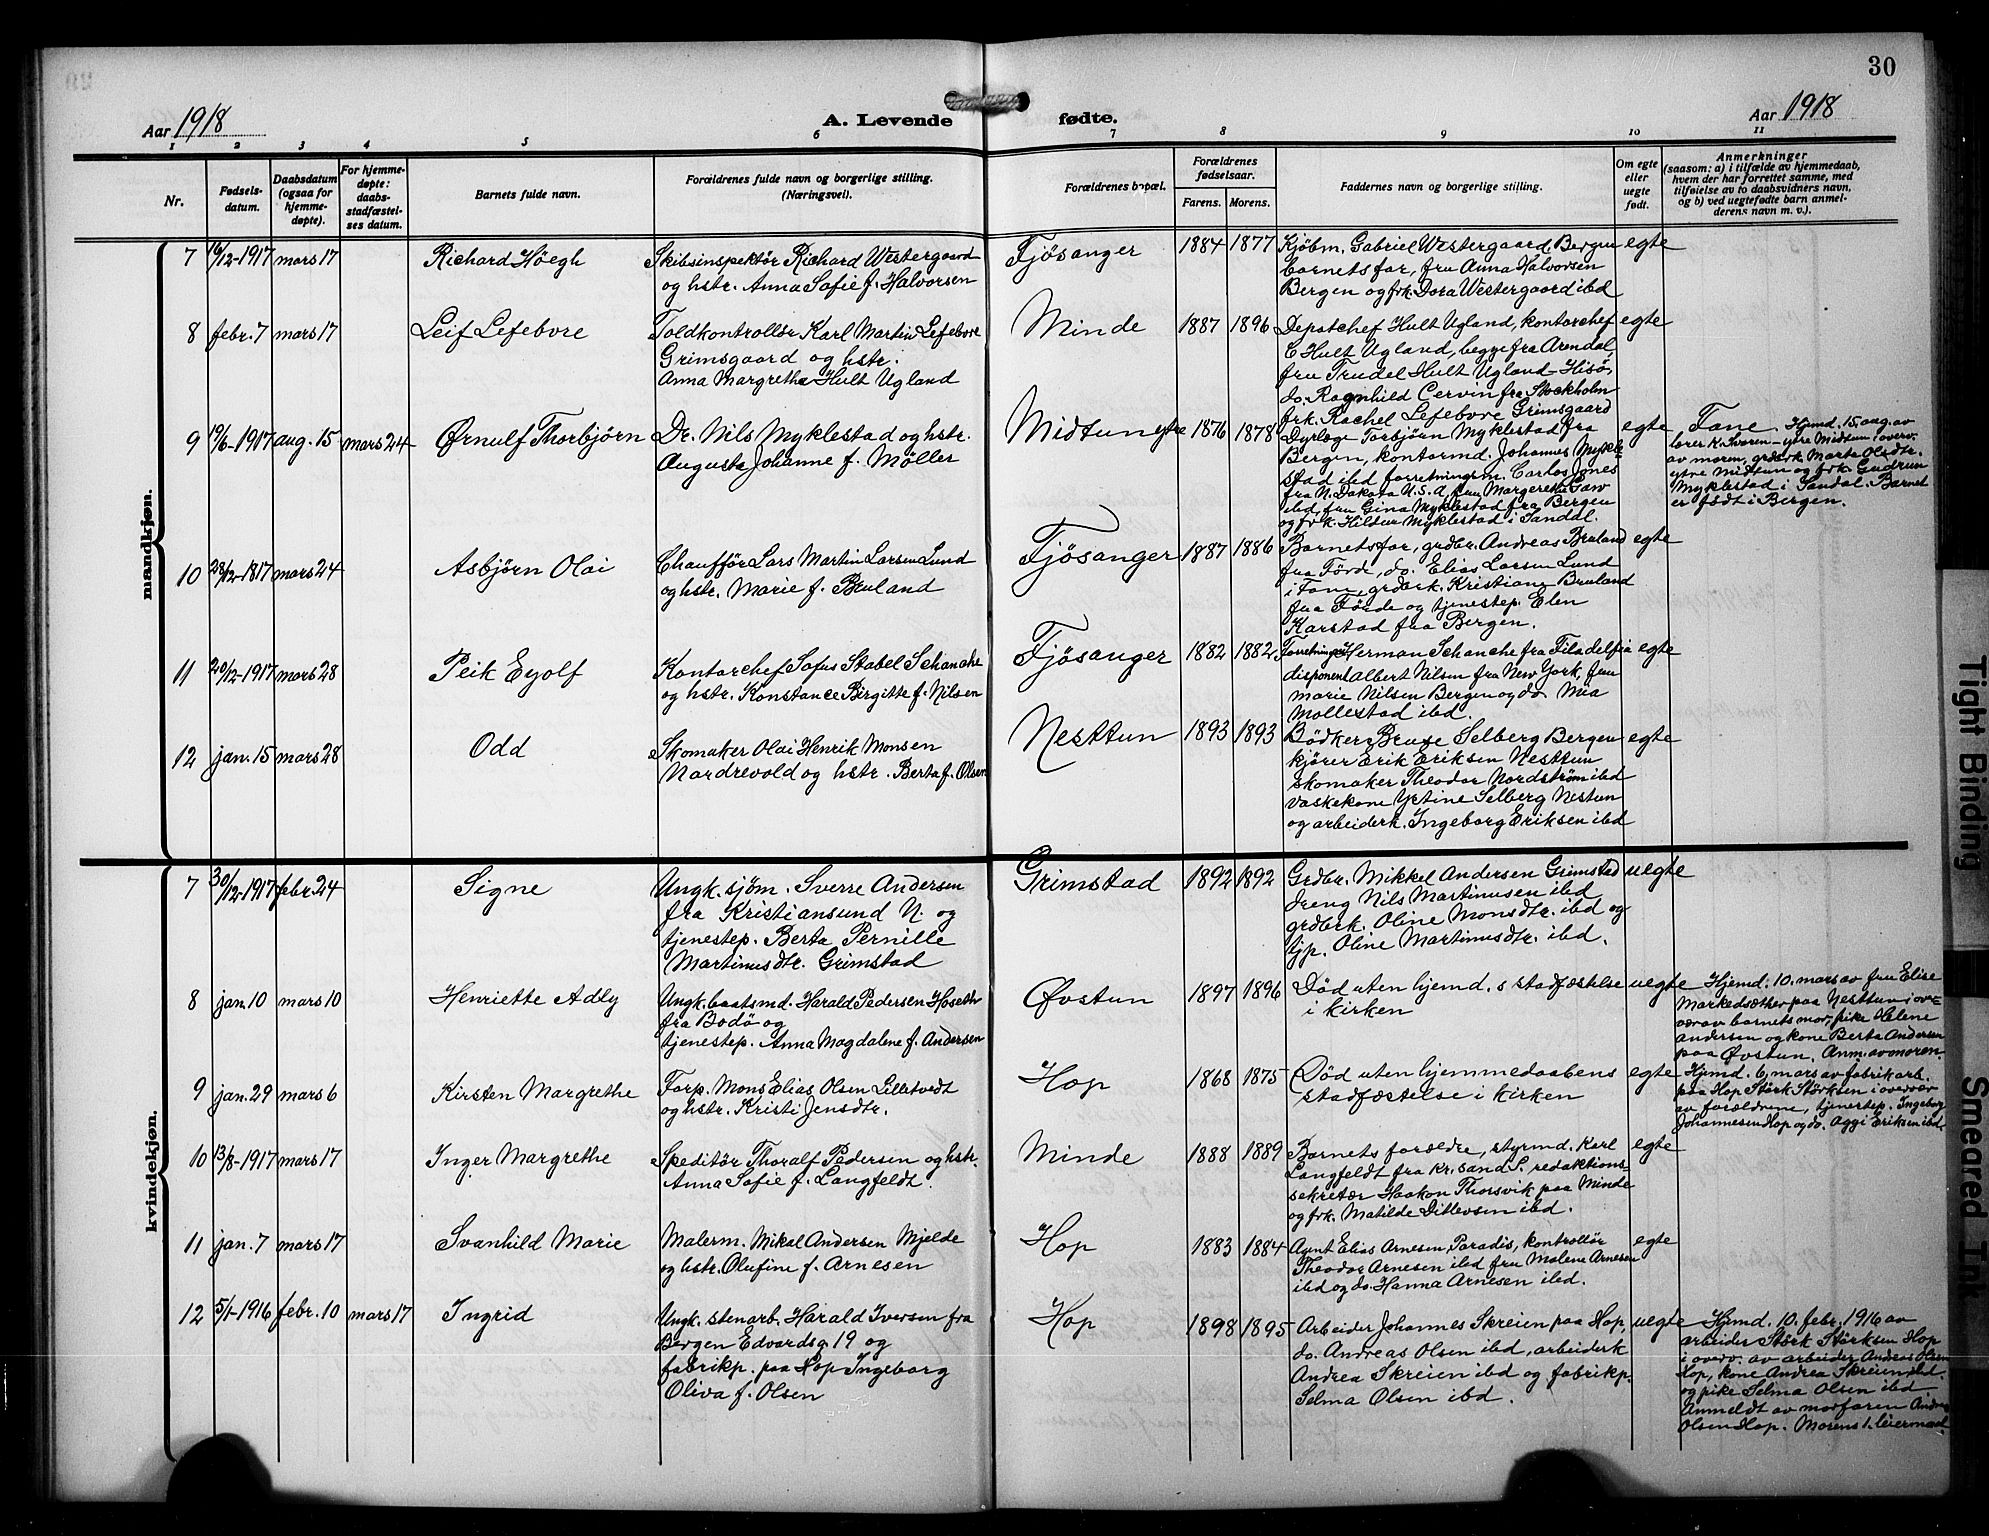 30
Aar 1918
A. Levende fødte.
Aar 1918
1 2 3 4 5 6 7 8 9 10 11
Nr.
Fødsels-
datum.
Daabsdatum
(ogsaa for
hjemme-
døpte).
For hjemme-
døpte:
daabs-
stadfæstel-
ses datum.
Barnets fulde navn.
Forældrenes fulde navn og borgerlige stilling.
(Næringsvei).
Forældrenes bopæl.
Forældrenes
fødselsaar.
Farens. Morens.
Faddernes navn og borgerlige stilling.
Om egte
eller
uegte
født.
Anmerkninger
(saasom: a) i tilfælde av hjemmedaab,
hvem der har forrettet samme, med
tilføielse av to daabsvidners navn,
og b) ved uegtefødte barn anmel-
derens navn m. v.).
mandkjøn.
7 16/12-1917 mars 17 Richard Höegh
Skibsinspektör Richard Westergaard
og hstr. Anna Sofie f. Halvorsen
Fjösanger 1884 1877
Kjöbm. Gabriel Westergaard Bergen
barnets far, fru Anna Halvorsen
Bergen og frk. Dora Westergaard ibd
egte
8 febr. 7 mars 17 Leif Lefebvre
Toldkontrollör Karl Martin Lefebvre
Grimsgaard og hstr.
Anna Margrethe Hult Ugland
Minde 1887 1896
Depotchef Hult Ugland, kontorchef
C Hult Ugland, begge fra Arendal,
fru Trudel Hult Ugland Hisö,
do. Ragnhild Cervin fra Stockholm
frk. Rachel Lefebvre Grimsgaard
egte
9 19/6-1917 aug. 15 mars 24 Ørnulf Thorbjörn
Dr. Nils Myklestad og hstr.
Augusta Johanne f. Möller
Midtun ytre 1876 1878
Dyrlæge Torbjörn Myklestad fra
Bergen, kontormd. Johannes Mykle-
stad ibd forretningsm. Carlos Jones
fra N. Dakota U.S.A, fru Margerethe
ibd, fru Gina Myklestad fra Bergen
og frk. Hildur Myklestad i Sandal.
egte
Fane. Hjmd. 15. aug. av
lærer K. Tveren - ytre Midtun i overv.
av moren, grdbrk. Marta Olsdtr.
ytre Midtun og frk. Gudrun
Myklestad i Sandal. Barnet
er födt i Bergen.
10 28/12-1817 mars 24 Asbjörn Olai
Chafför Lars Martin Larsen Lund
og hstr. Marie f. Bruland
Fjösanger 1887 1886
Barnets far, grdbr. Andreas Bruland
fra Förde, do. Elias Larsen Lund
i Fane, grdbrk. Kristiane Bruland
fra Förde og tjenestep. Elen
Karstad fra Bergen.
egte
11 20/12-1917 mars 28 Peik Eyolf
Kontorchef Sofus Stabel Schanche
og hstr. Konstance Birgitte f. Nilsen
Fjösanger 1882 1882
Forretningsf. Herman Schanche fra Filadelfia
disponent Albert Nilsen fra New York, fru
Marie Nilsen Bergen og do Mia
Mollestad ibd.
egte
12 jan. 15 mars 28 Odd
Skomaker Olai Henrik Monsen
Nordrevold og hstr. Berta f. Olsen
Nesttun 1893 1893
Bödker Selberg Bergen
kjörer Erik Eriksen Nesttun
skomaker Theodor Nordström ibd
vaskekone Selberg Nestun
og arbeiderk. Ingeborg Eriksen ibd
egte
kvindekjøn.
7 30/12-1917 febr. 24 Signe
Ungk. sjöm. Sverre Andersen
fra Kristiansund N. og
tjenestep. Berta Pernille
Martinusdtr. Grimstad
Grimstad 1892 1892
Grdbr. Mikkel Andersen Grimstad
dreng Nils Martinusen ibd
grdbrk. Oline Monsdtr. ibd og
tjp. Oline Martinusdtr. ibd.
uegte
8 jan. 10 mars 10 Henriette Adly
Ungk. baatsmd. Harald Pedersen Hoseth
fra Bodö og
tjenestep. Anna Magdalene f. Andersen
Øvstun 1897 1896
Död uten hjemd.s stadfæstelse
i kirken
uegte
Hjemd. 10. mars av fru Elise
Markedsæther paa Nesttun i over-
vær av barnets mor, pike Helene
Andersen og kone Berta Andersen
paa Øvstun. Anm. av moren.
9 jan. 29 mars 6 Kirsten Margrethe
Forp. Mons Elias Olsen Lilletvedt
og hstr. Kristi Jensdtr.
Hop 1868 1875
Död uten hjemmedaabens
stadfæstelse i kirken
egte
Hjemd. 6. mars av fabrikarb.
paa Hop Störk Störksen i overv. av
av forældrene, tjenestep. Ingeborg
Johannesen Hop og do. Aggi Eriksen ibd.
10 13/8-1917 mars 17 Inger Margrethe
Speditör Thoralf Pedersen og hstr.
Anna Sofie f. Langfeldt.
Minde 1888 1889
Barnets forældre, styrmd. Karl
Langfeldt fra Kr.sand S. redaktions-
sekretær Haakon Thorsvik paa Minde
og frk. Matilde Ditlevsen ibd.
egte
11 jan. 7 mars 17 Svanhild Marie
Malerm. Mikal Andersen Mjelde
og hstr. Olufine f. Arnesen
Hop 1883 1884
Agnt Elias Arnesen Paradis, kontrollör
Theodor Arnesen ibd fru Malene Arnesen
ibd og do. Hanna Arnesen ibd.
egte
12 5/1-1916 febr. 10 mars 17 Ingrid
Ungk. stenarb. Harald Iversen fra
Bergen Edvardsg 19 og
fabrikp. paa Hop Ingeborg
Oliva f. Olsen
Hop 1898 1895
Arbeider Johannes Skreien paa Hop,
do. Andreas Olsen ibd, arbeiderk
Andrea Skreien ibd og fabrikp.
Selma Olsen ibd.
uegte
Hjemd. 10. febr. 1916 av
arbeider Störk Störksen Hop
i overv. av arbeider Andreas Olsen
Hop, kone Andrea Skreien ibd.
og pike Selma Olsen ibd.
Anmeldt av morfaren Andreas
Olsen Hop. Morens 1. leiermaal
Tight Binding
Smeared Ink